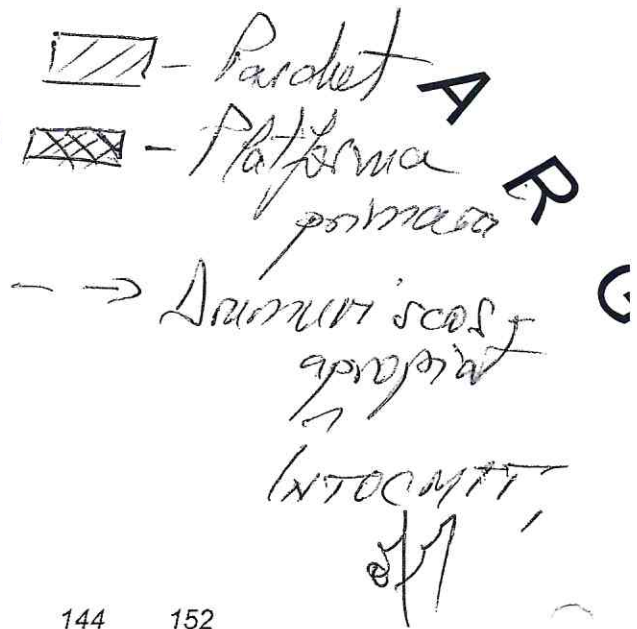 - Parchet
A
- Platforma
primara
R
G
Drumuri scos +
apropiat
INTOCMIT,
144 152